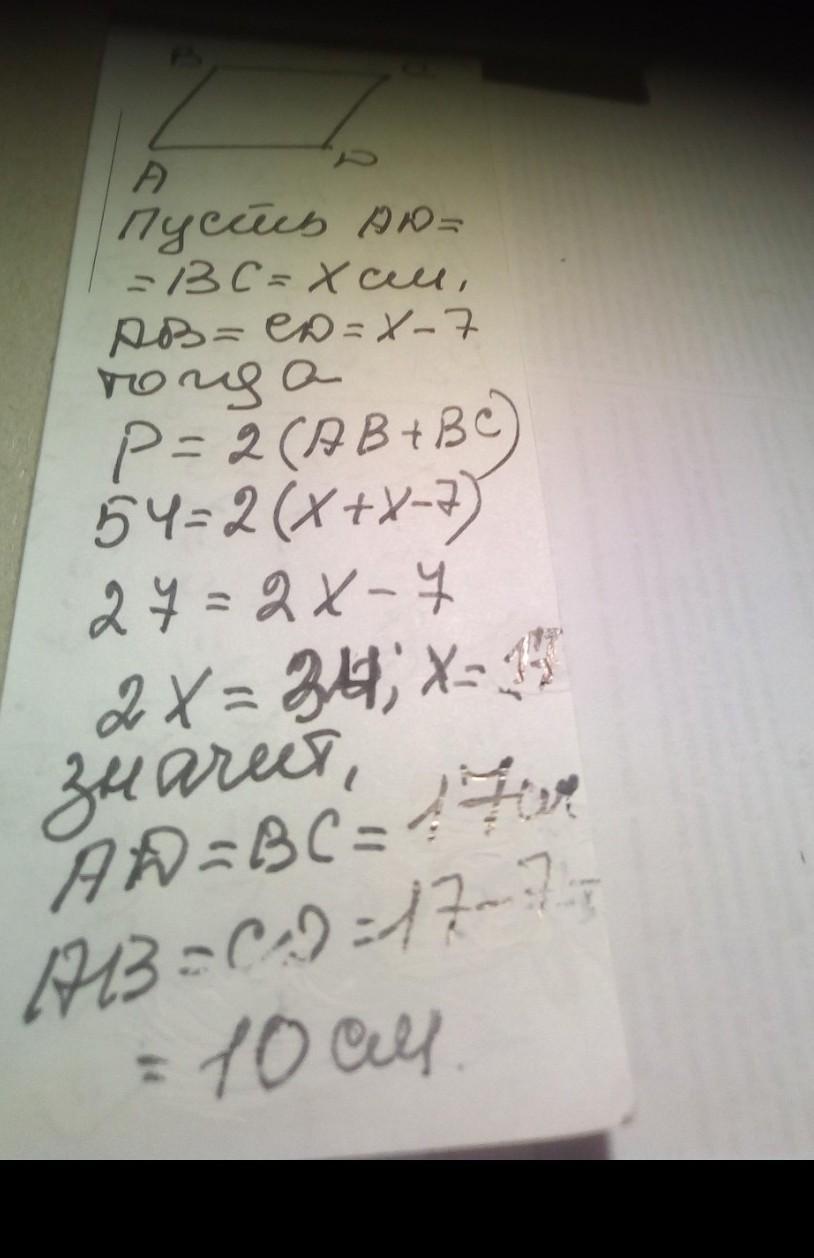 B C
A D
Пусть AD=
=BC= x см,
AB= CD= x-7
тогда
P= 2(AB+BC)
54=2(x+x-7)
27=2x-7
2x=34; x= 17
значит,
AD=BC= 17см
AB=CD=17-7=
= 10 см.